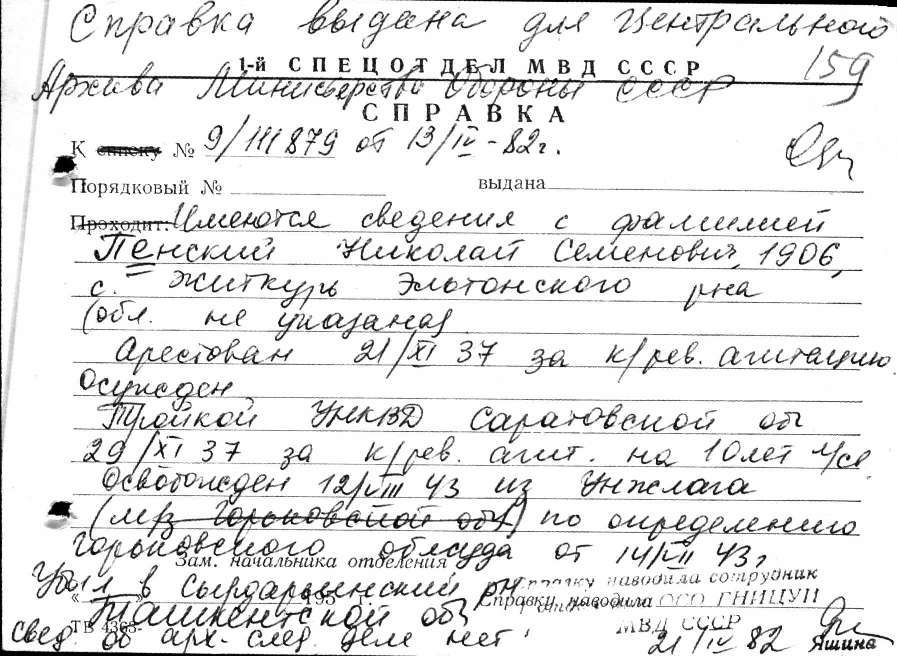 Справка выдана для Центрального
1-й СПЕЦОТДЕЛ МВД СССР
159
Архива Министерства Обороны СССР
СПРАВКА
К списку № 9/111879 от 13/IV-82г.
Порядковый № выдана
Проходит: Имеются сведения с фамилией
Пенский Николай Семенович, 1906,
с. Житкурь Эльтонского рна
(обл. не указана)
Арестован 21/XI 37 за к/рев. агитацию
Осужден
Тройкой УНКВД Саратовской обл
29/XI 37 за к/рев. агит. на 10 лет л/св
Освобожден 12/VIII 43 из Унжлага
(м/з Горьковской обл) по определению
Горьковского облсуда от 14/VII 43г
Зам. начальника отделения
Убыл в Сырдарьинский рн
Справку наводила сотрудник
Ташкентской обл
Справку наводила ОСО ГНИЦУИ
МВД СССР
ТВ 4368-
свед. об арх-след. деле нет.
21/IV 82 Яшина